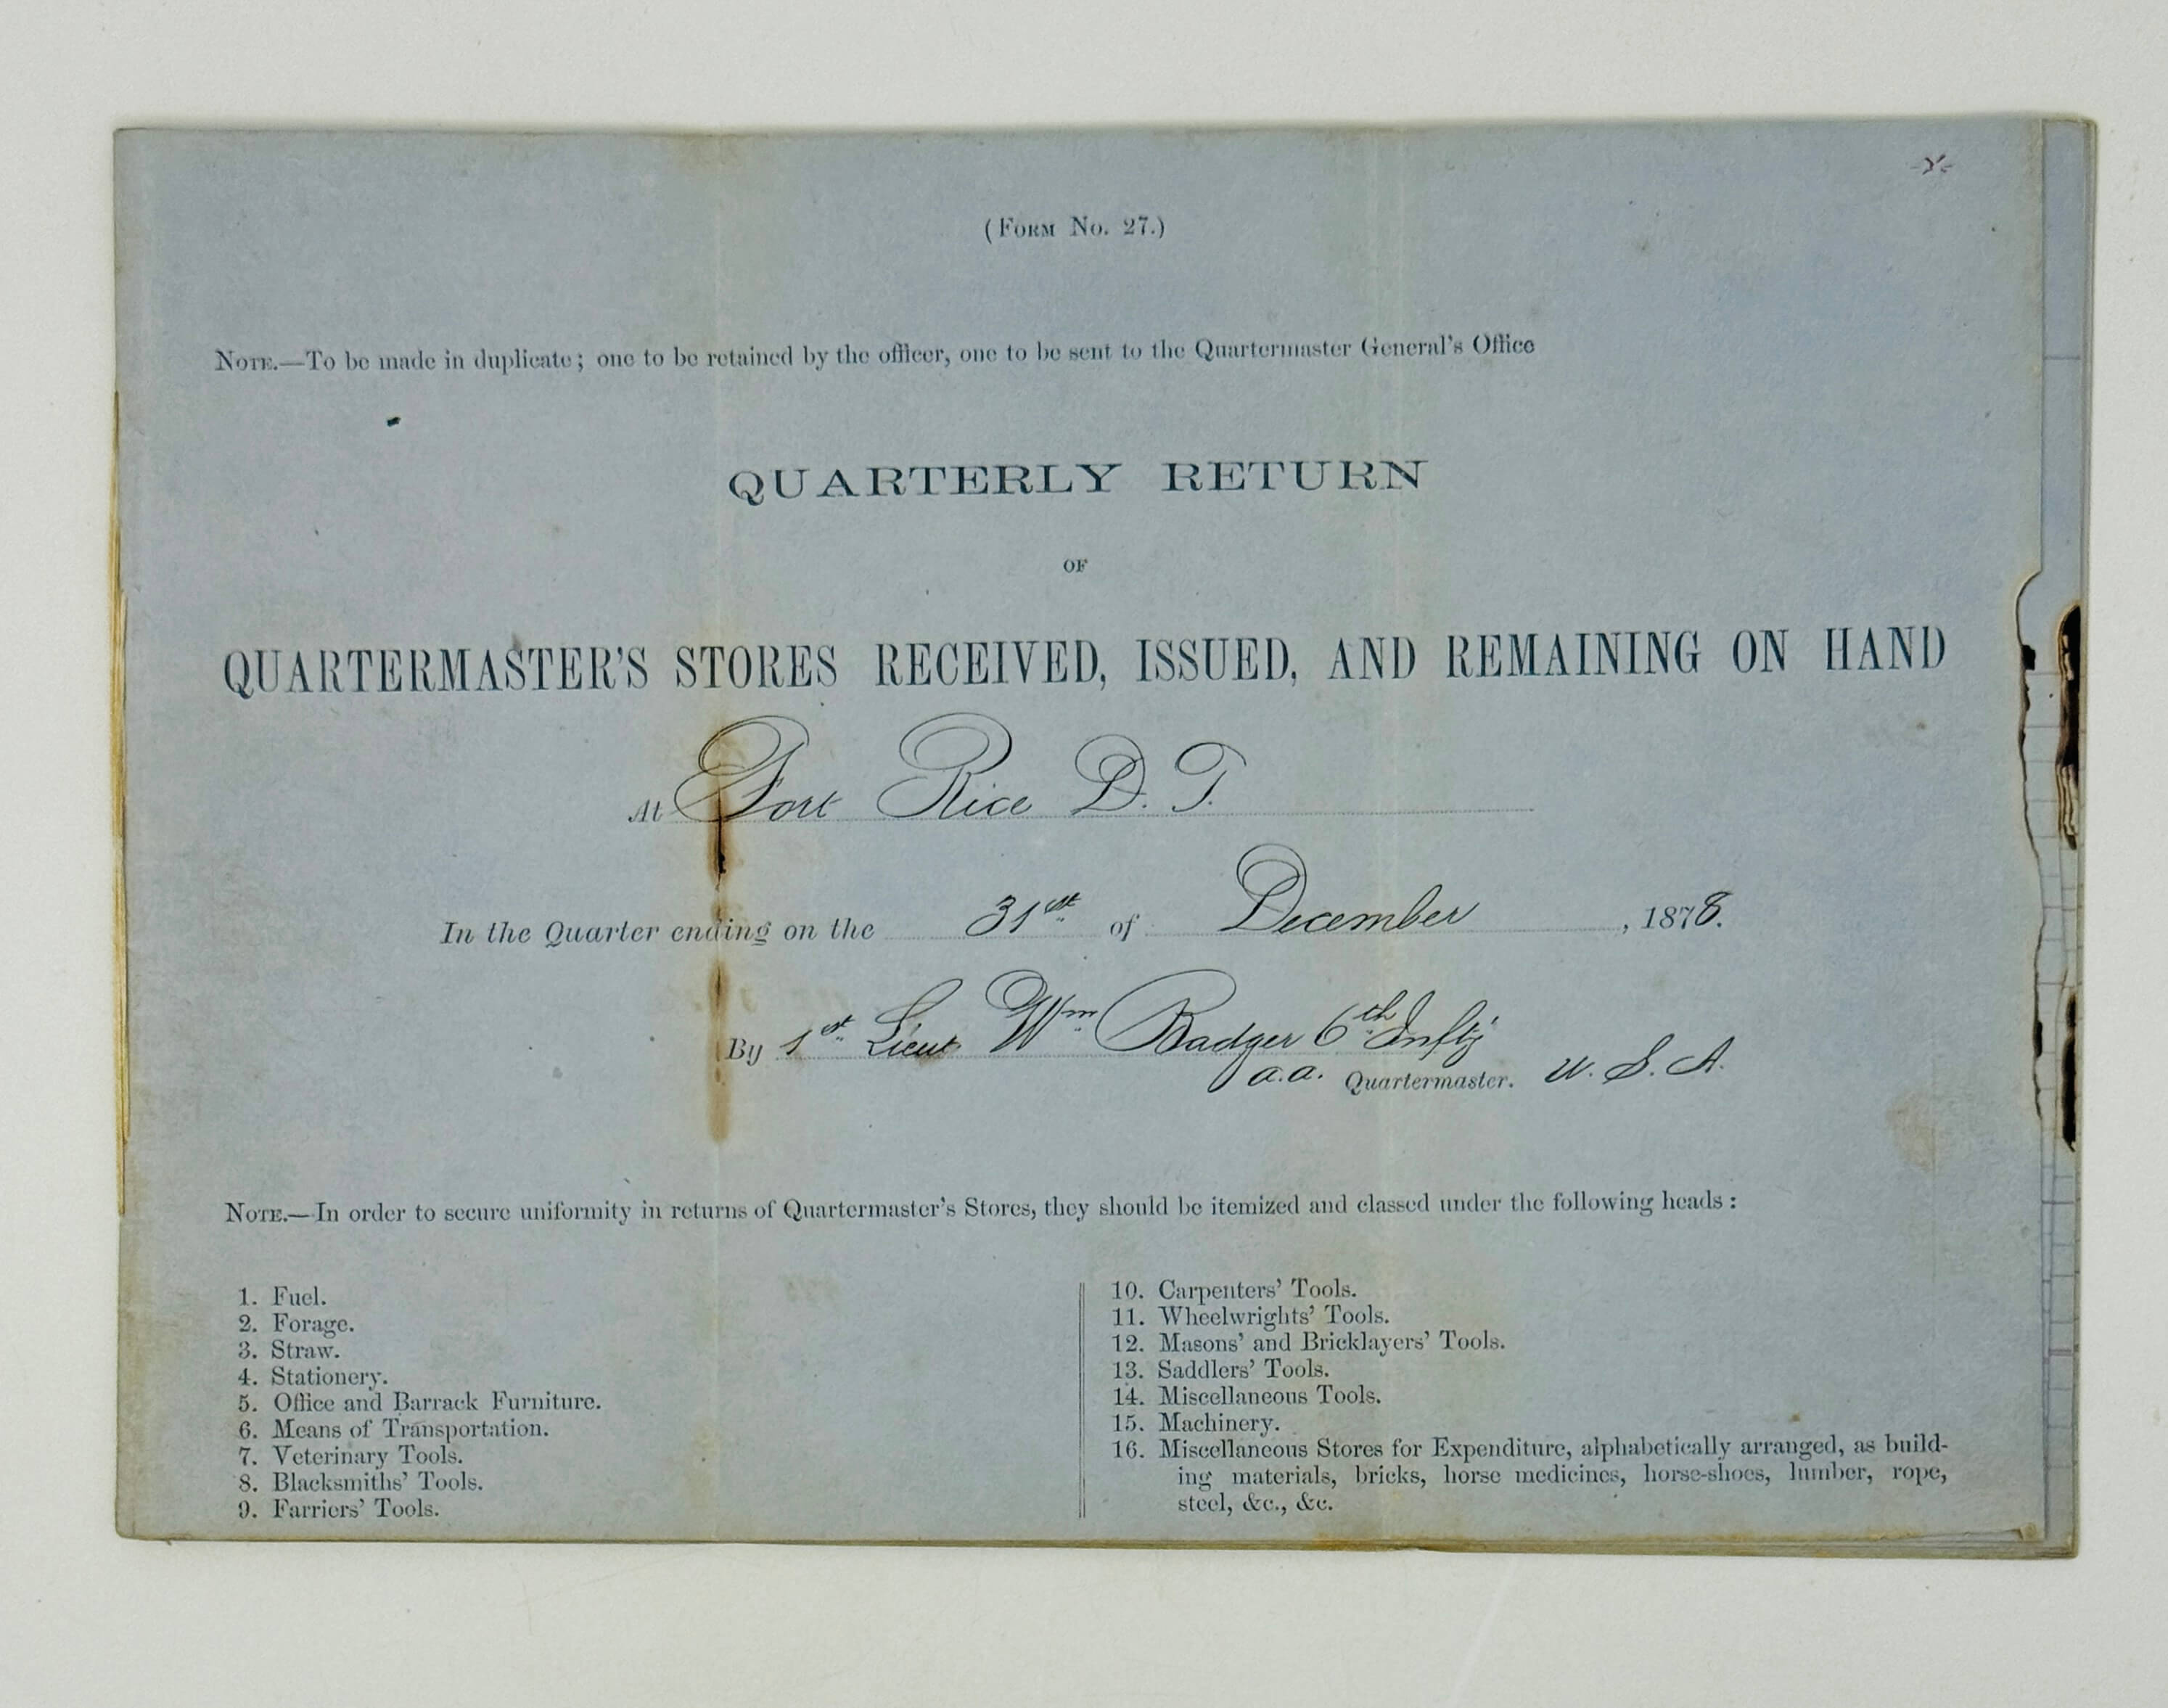 (Form No. 27.)
Note.—To be made in duplicate; one to be retained by the officer, one to be sent to the Quartermaster General's Office
QUARTERLY RETURN
OF
QUARTERMASTER'S STORES RECEIVED, ISSUED, AND REMAINING ON HAND
At Fort Rice D. T.
In the Quarter ending on the 31st of December, 1878.
By 1st Lieut Wm Badger 6th Infty
a.a. Quartermaster. U. S. A.
Note.—In order to secure uniformity in returns of Quartermaster's Stores, they should be itemized and classed under the following heads:
1. Fuel.
2. Forage.
3. Straw.
4. Stationery.
5. Office and Barrack Furniture.
6. Means of Transportation.
7. Veterinary Tools.
8. Blacksmiths' Tools.
9. Farriers' Tools.
10. Carpenters' Tools.
11. Wheelwrights' Tools.
12. Masons' and Bricklayers' Tools.
13. Saddlers' Tools.
14. Miscellaneous Tools.
15. Machinery.
16. Miscellaneous Stores for Expenditure, alphabetically arranged, as build-
ing materials, bricks, horse medicines, horse-shoes, lumber, rope,
steel, &c., &c.